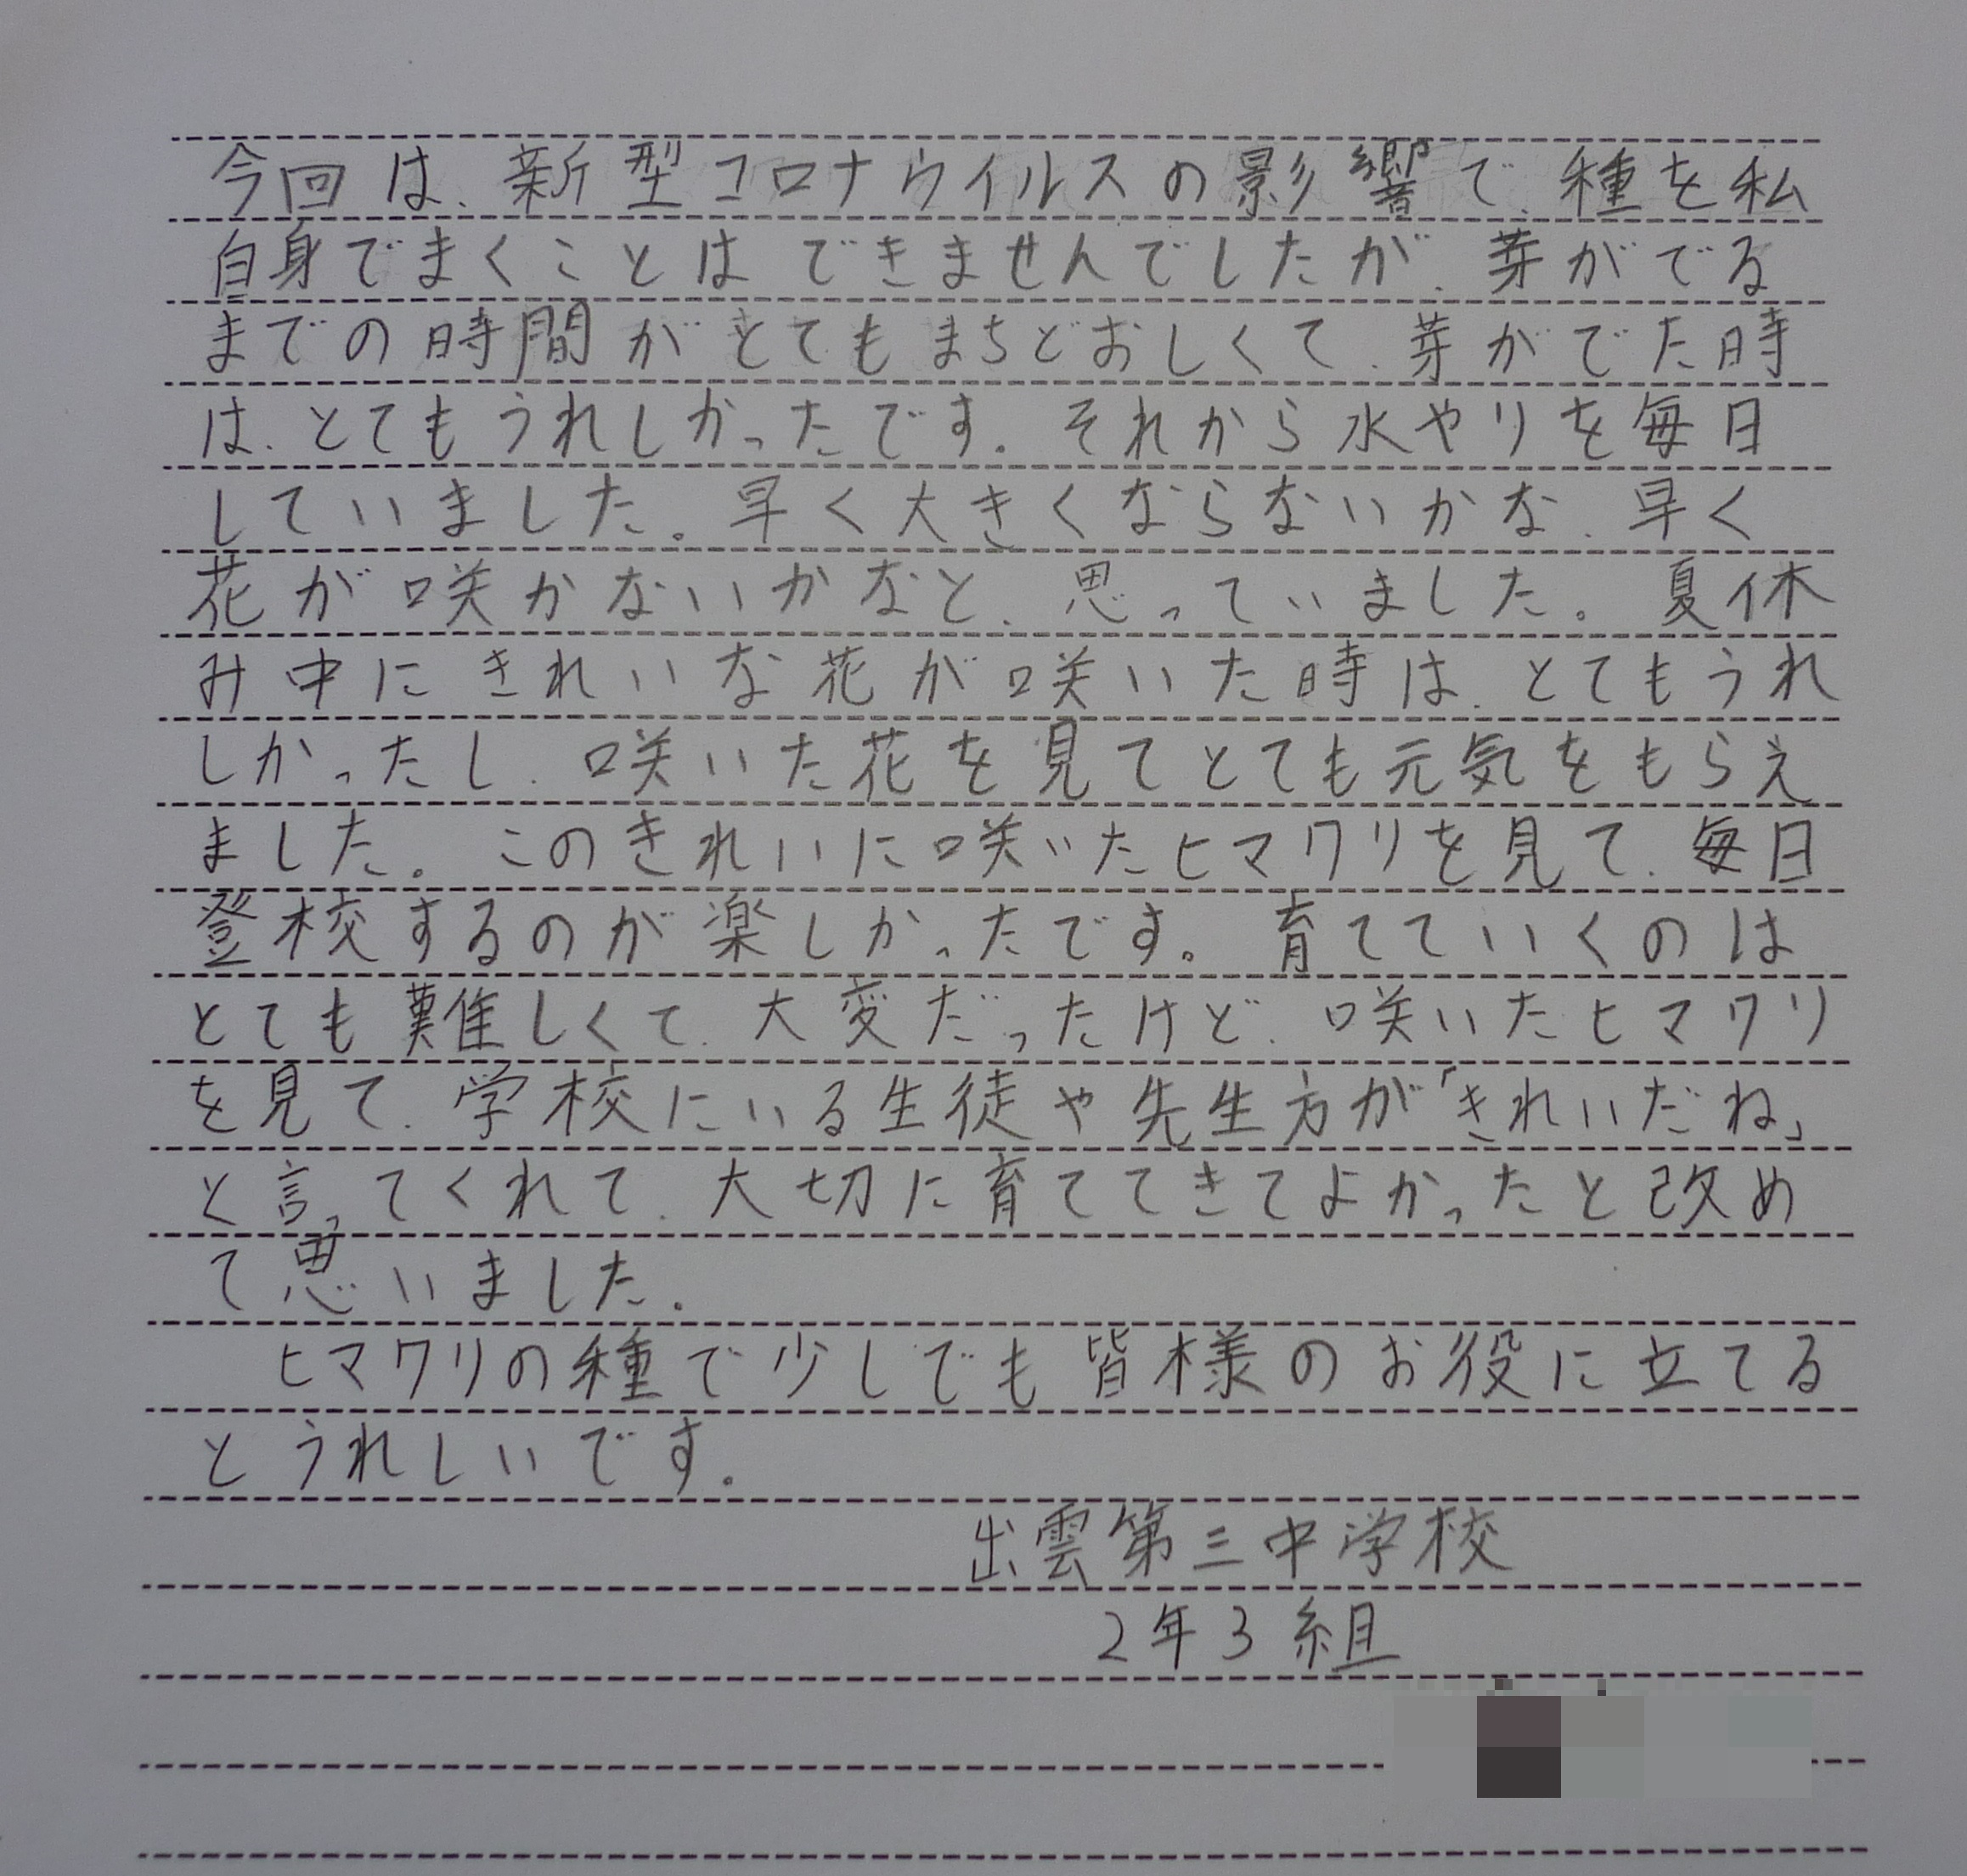 今回は、新型コロナウイルスの影響で、種を私
自身でまくことはできませんでしたが、芽がでる
までの時間がとてもまちどおしくて、芽がでた時
は、とてもうれしかったです。それから水やりを毎日
していました。早く大きくならないかな、早く
花が咲かないかなと、思っていました。夏休
み中にきれいな花が咲いた時は、とてもうれ
しかったし、咲いた花を見てとても元気をもらえ
ました。このきれいに咲いたヒマワリを見て、毎日
登校するのが楽しかったです。育てていくのは
とても難しくて、大変だったけど、咲いたヒマワリ
を見て、学校にいる生徒や先生方が「きれいだね」
と言ってくれて、大切に育ててきてよかったと改め
て思いました。
ヒマワリの種で少しでも皆様のお役に立てる
とうれしいです。
出雲第三中学校
2年3組